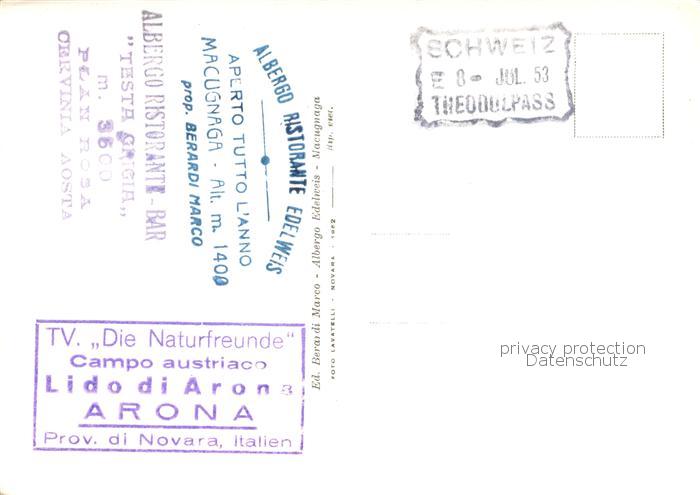 ALBERGO RISTORANTE - BAR
"TESTA GRIGIA"
m. 3500
PLAN ROSA
CERVINIA AOSTA
ALBERGO RISTORANTE EDELWEIS
APERTO TUTTO L'ANNO
MACUGNAGA - Alt. m. 1400
prop. BERARDI MARCO
Ed. Berardi Marco - Albergo Edelweis - Macugnaga
FOTO LAVATELLI - NOVARA - 1952
SCHWEIZ
E 8 - JUL. 53
THEODULPASS
TV. „Die Naturfreunde"
Campo austriaco
Lido di Arona
ARONA
Prov. di Novara, Italien
privacy protection
Datenschutz